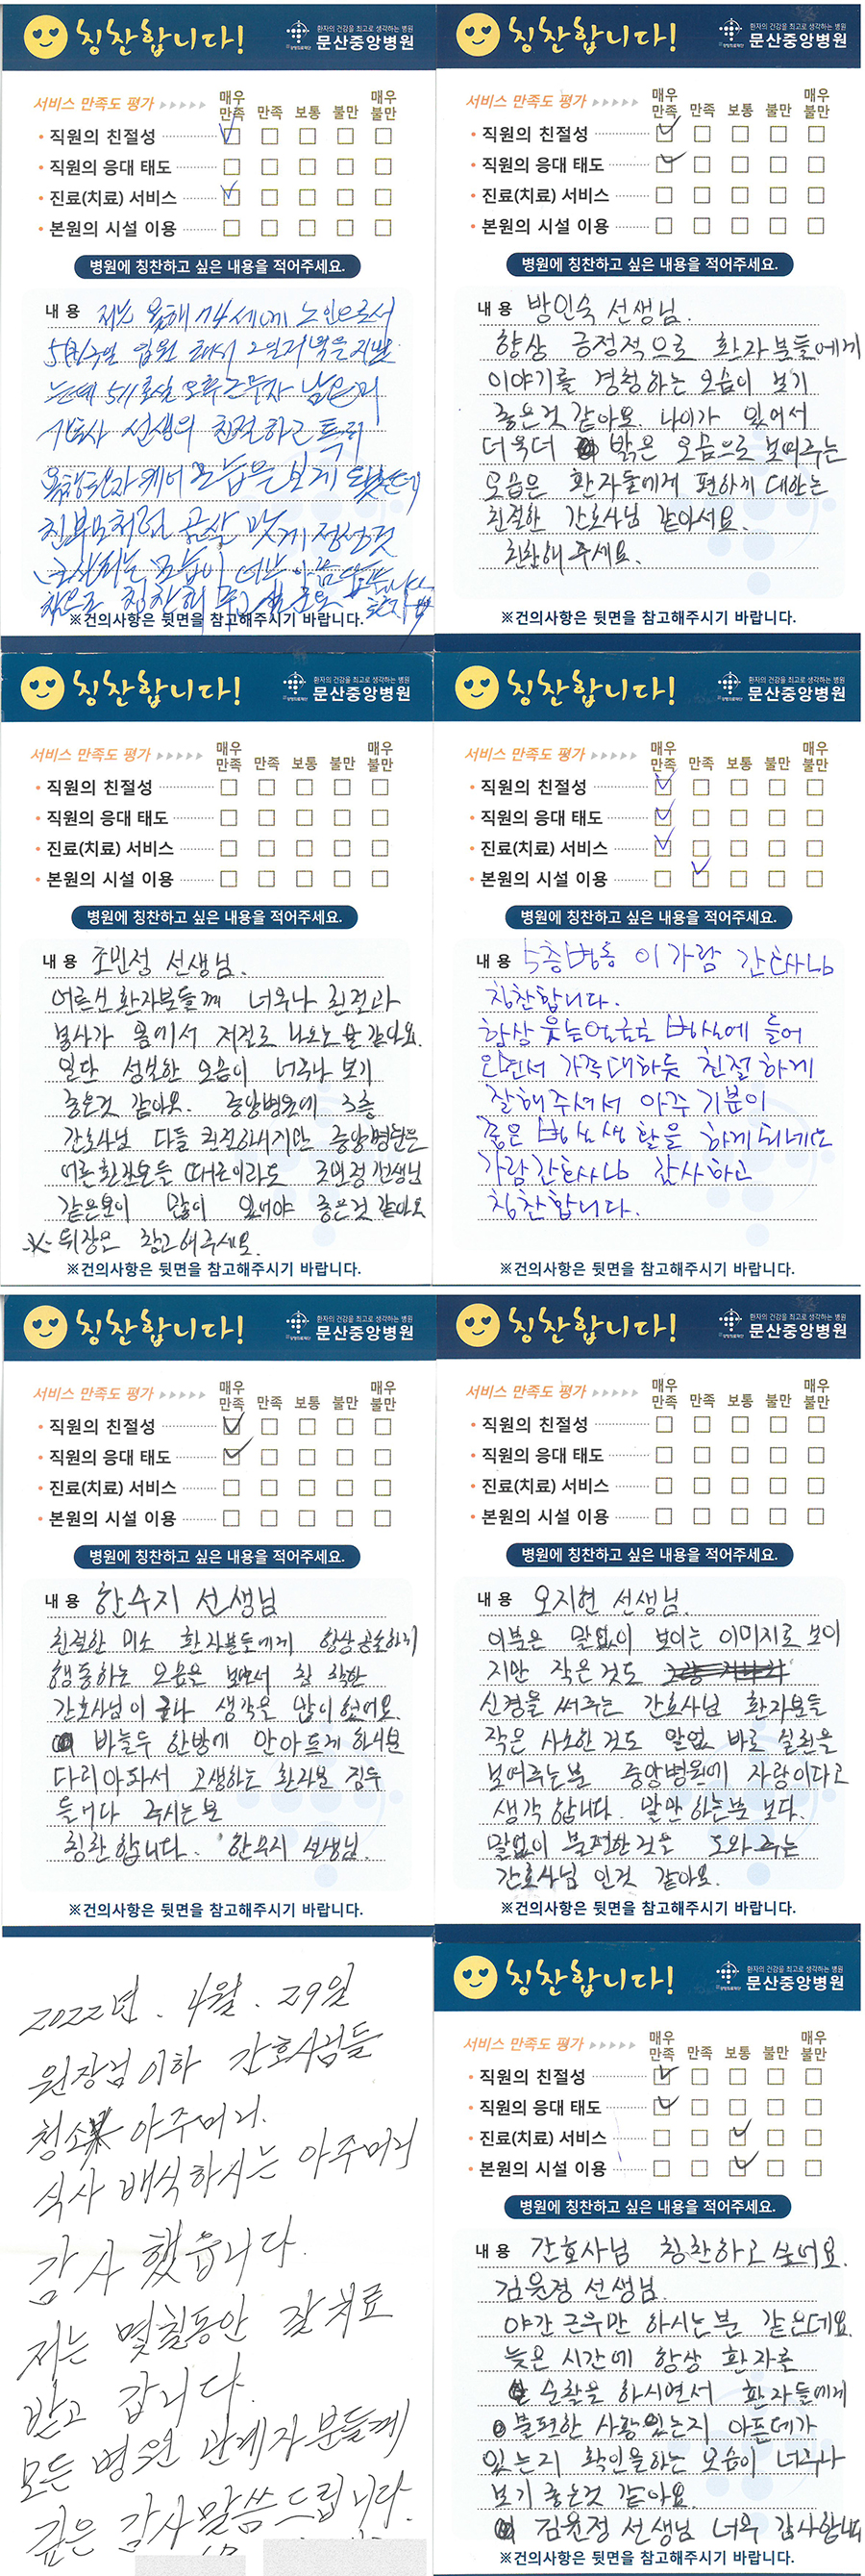 칭찬합니다!
환자의 건강을 최고로 생각하는 병원
문산중앙병원
서비스 만족도 평가
매우 만족 만족 보통 불만 매우 불만
• 직원의 친절성
• 직원의 응대 태도
• 진료(치료) 서비스
• 본원의 시설 이용
병원에 칭찬하고 싶은 내용을 적어주세요.
내 용 저는 올해 74세에 노인으로서
입원 해서 2일저녁을 지냈
는데 511호실 오후근무자
간호사 선생의 친절하고 특히
모습을 보게 되었는데
친부모처럼
모습이 너무
칭찬해 주고 싶군요
※건의사항은 뒷면을 참고해주시기 바랍니다.
칭찬합니다!
환자의 건강을 최고로 생각하는 병원
문산중앙병원
서비스 만족도 평가
매우 만족 만족 보통 불만 매우 불만
• 직원의 친절성
• 직원의 응대 태도
• 진료(치료) 서비스
• 본원의 시설 이용
병원에 칭찬하고 싶은 내용을 적어주세요.
내 용 방인숙 선생님.
항상 긍정적으로 환자분들에게
이야기를 경청하는 모습이 보기
좋은것 같아요. 나이가 있어서
더욱더 밝은 모습으로 보여주는
모습은 환자들에게 편하게 대하는
친절한 간호사님 같아서요.
칭찬해 주세요.
※건의사항은 뒷면을 참고해주시기 바랍니다.
칭찬합니다!
환자의 건강을 최고로 생각하는 병원
문산중앙병원
서비스 만족도 평가
매우 만족 만족 보통 불만 매우 불만
• 직원의 친절성
• 직원의 응대 태도
• 진료(치료) 서비스
• 본원의 시설 이용
병원에 칭찬하고 싶은 내용을 적어주세요.
내 용 조민정 선생님.
어르신 환자분들께 너무나 친절과
봉사가 몸에서 저절로 나오는 분 같아요.
일단 성보한 모습이 너무나 보기
좋은것 같아요. 중앙병원에 5층
간호사님 다들 친절하시지만 중앙병원은
어른환자분들 때문이라도 조민정 선생님
같은분이 많이 있어야 좋은것 같아요
※ 뒤장은 참고해주세요.
※건의사항은 뒷면을 참고해주시기 바랍니다.
칭찬합니다!
환자의 건강을 최고로 생각하는 병원
문산중앙병원
서비스 만족도 평가
매우 만족 만족 보통 불만 매우 불만
• 직원의 친절성
• 직원의 응대 태도
• 진료(치료) 서비스
• 본원의 시설 이용
병원에 칭찬하고 싶은 내용을 적어주세요.
내 용 5층병동 이가람 간호사님
칭찬합니다.
항상 웃는얼굴로 병실에 들어
오면서 가족대하듯 친절하게
잘해주셔서 아주 기분이
좋은 병실생활을 하게 되네요
가람간호사님 감사하고
칭찬합니다.
※건의사항은 뒷면을 참고해주시기 바랍니다.
칭찬합니다!
환자의 건강을 최고로 생각하는 병원
문산중앙병원
서비스 만족도 평가
매우 만족 만족 보통 불만 매우 불만
• 직원의 친절성
• 직원의 응대 태도
• 진료(치료) 서비스
• 본원의 시설 이용
병원에 칭찬하고 싶은 내용을 적어주세요.
내 용 한수지 선생님
친절한 미소 환자분들에게 항상공손하게
행동하는 모습을 보면서 참 착한
간호사님이 구나 생각을 많이 했어요.
바늘두 한방에 안아프게 하시분
다리아파서 고생하는 환자분 짐두
들어다 주시는분
칭찬합니다. 한수지 선생님.
※건의사항은 뒷면을 참고해주시기 바랍니다.
칭찬합니다!
환자의 건강을 최고로 생각하는 병원
문산중앙병원
서비스 만족도 평가
매우 만족 만족 보통 불만 매우 불만
• 직원의 친절성
• 직원의 응대 태도
• 진료(치료) 서비스
• 본원의 시설 이용
병원에 칭찬하고 싶은 내용을 적어주세요.
내 용 오지현 선생님.
이분은 말없이 보이는 이미지로 보이
지만 작은것도
신경을 써주는 간호사님 환자분들
작은 사소한 것도 말없 바로 실천을
보여주는분 중앙병원에 자랑이다고
생각 합니다. 말만 하는분 보다.
말없이 불편한것은 도와주는
간호사님 인것 같아요.
※건의사항은 뒷면을 참고해주시기 바랍니다.
2022년. 4월. 29일
원장님이하 간호사님들
청소 아주머니.
식사 배식하시는 아주머니
감사 했읍니다.
저는 몇칠동안 잘치료
받고 갑니다.
모든 병원 관계자분들께
깊은 감사말씀드립니다.
칭찬합니다!
환자의 건강을 최고로 생각하는 병원
문산중앙병원
서비스 만족도 평가
매우 만족 만족 보통 불만 매우 불만
• 직원의 친절성
• 직원의 응대 태도
• 진료(치료) 서비스
• 본원의 시설 이용
병원에 칭찬하고 싶은 내용을 적어주세요.
내 용 간호사님 칭찬하고 싶어요.
김윤정 선생님.
야간 근무만 하시는분 같은데요.
늦은 시간에 항상 환자를
순찰을 하시면서 환자들에게
불편한 사항있는지 아픈데가
있는지 확인을하는 모습이 너무나
보기 좋은것 같아요.
김윤정 선생님 너무 감사합니다
※건의사항은 뒷면을 참고해주시기 바랍니다.